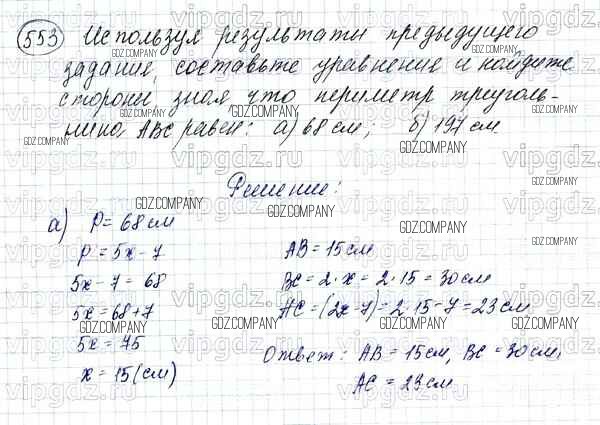 553 Используя результаты предыдущего
задания, составьте уравнение и найдите
стороны, зная, что периметр треуголь-
ника ABC равен: а) 68 см; б) 197 см
Решение:
а) P = 68 см
P = 5x - 7
5x - 7 = 68
5x = 68 + 7
5x = 75
x = 15 (см)
AB = 15 см
BC = 2 · x = 2 · 15 = 30 см
AC = (2x - 7) = 2 · 15 - 7 = 23 см
Ответ: AB = 15 см, BC = 30 см,
AC = 23 см
GDZ.COMPANY
vipgdz.ru